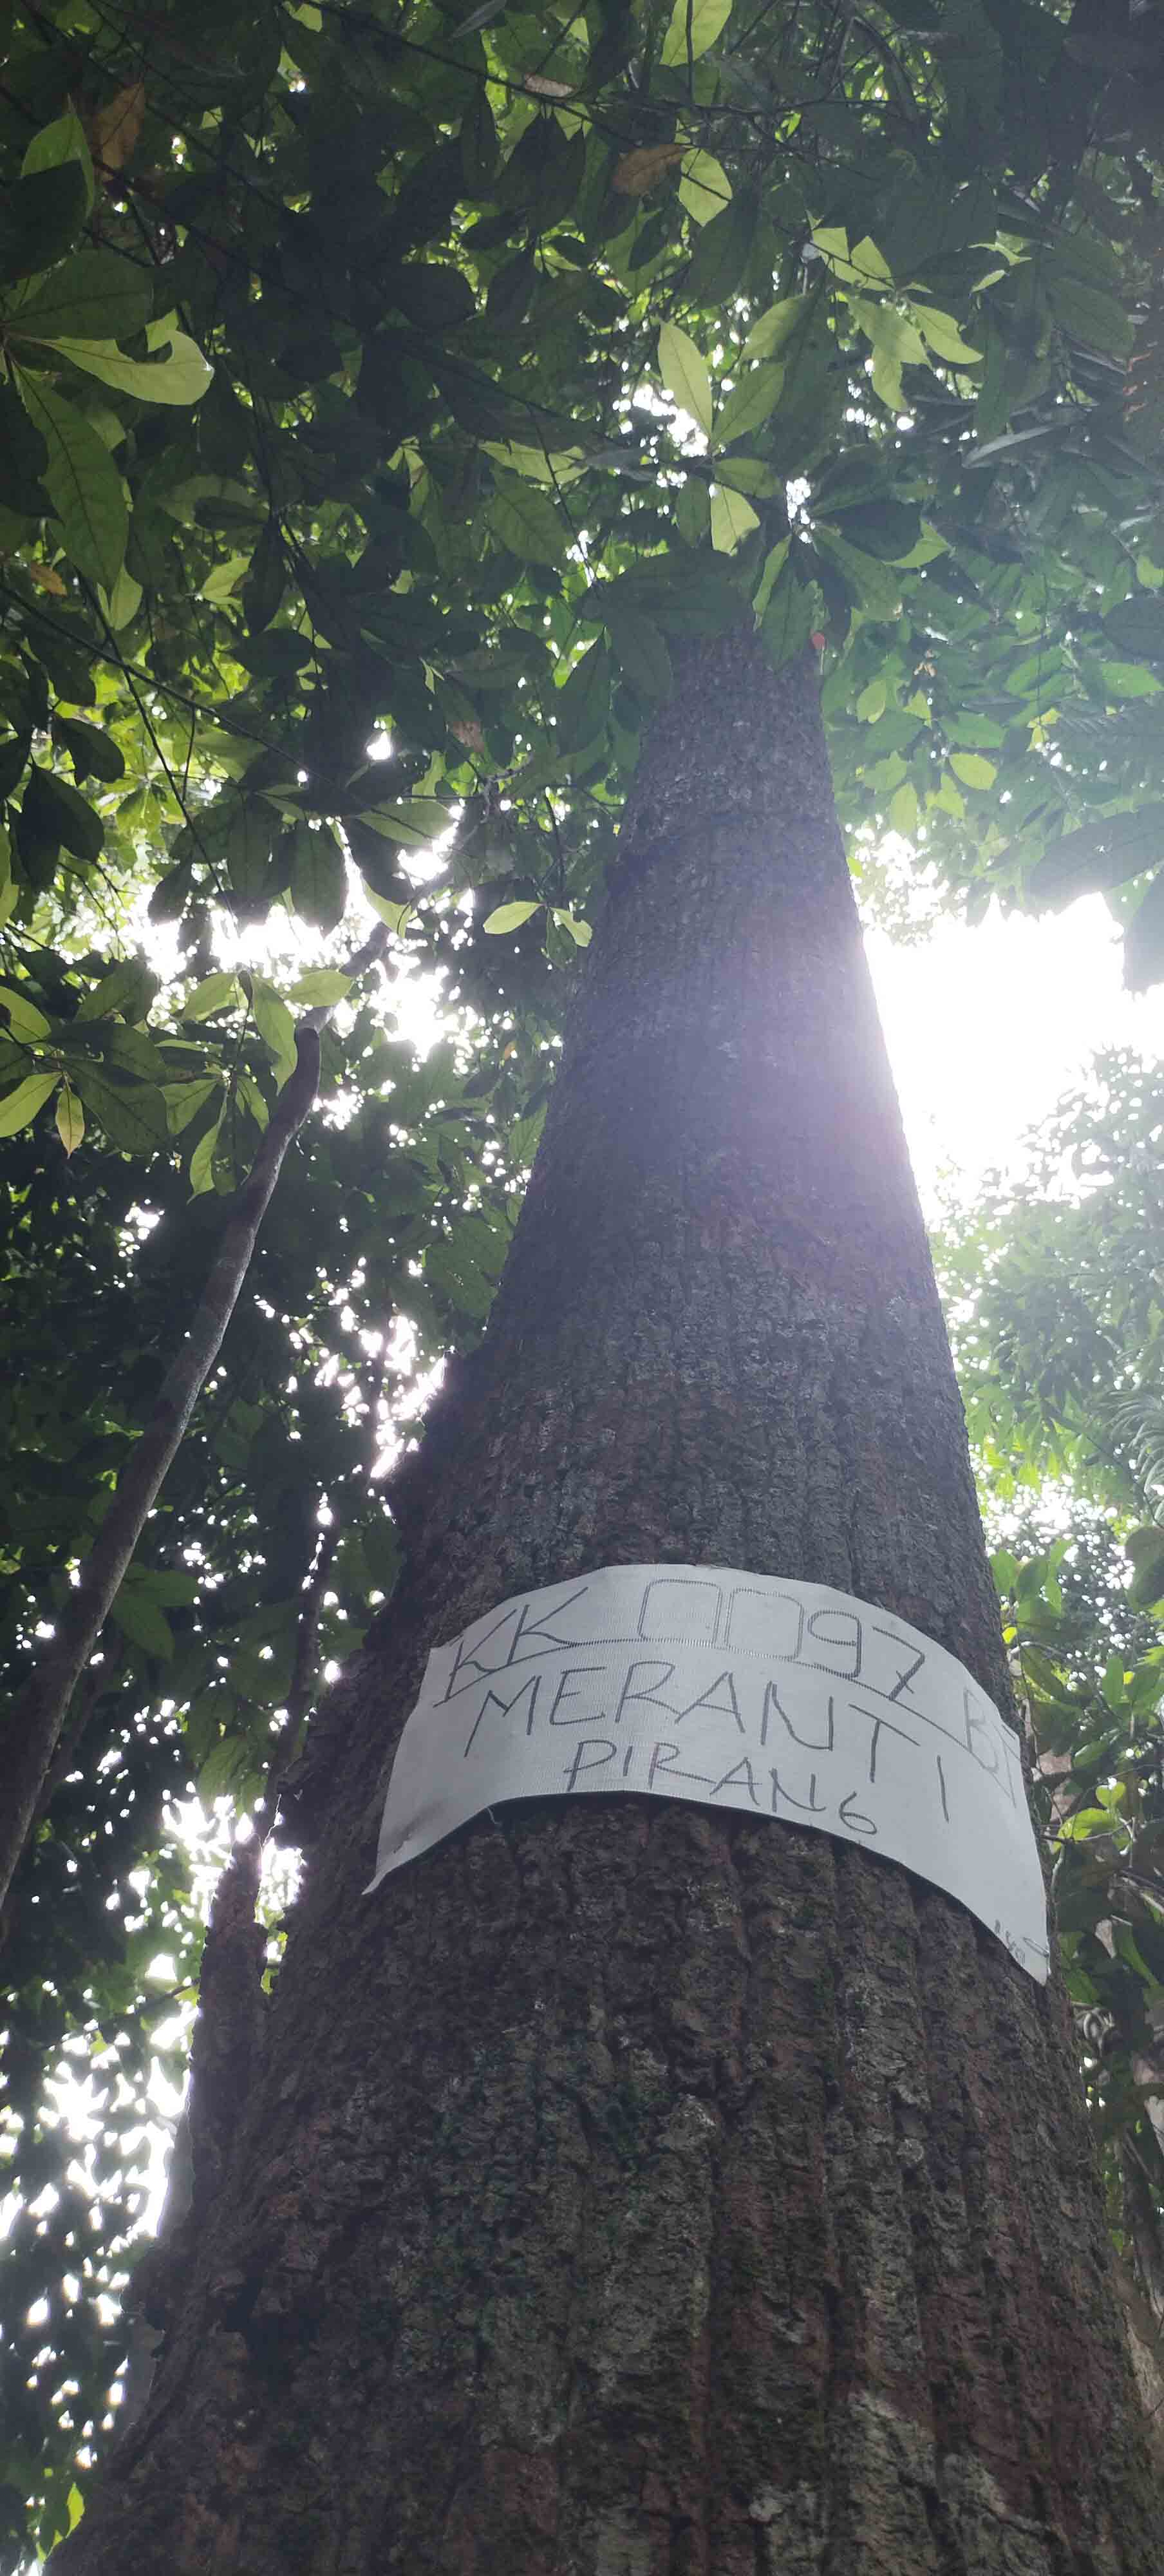 KK 0097 BT
MERANTI
PIRANG